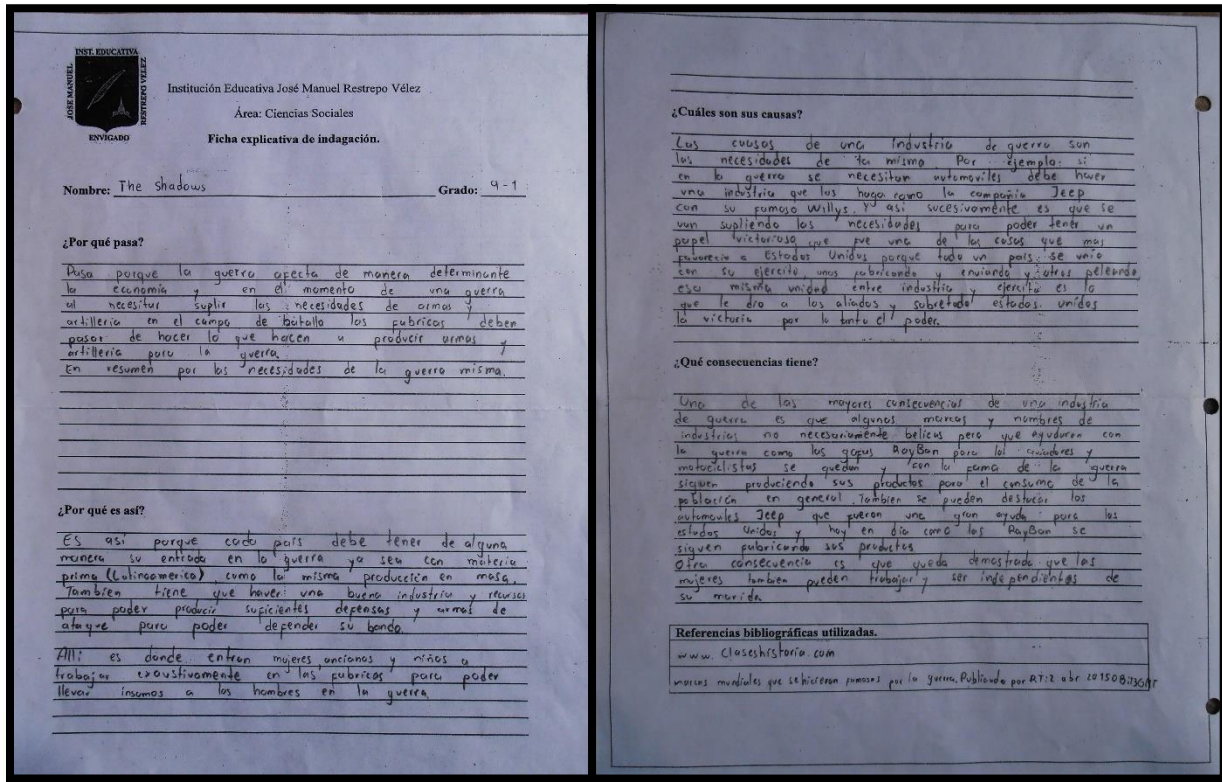 INST. EDUCATIVA
JOSE MANUEL
RESTREPO VELEZ
ENVIGADO
Institución Educativa José Manuel Restrepo Vélez
Área: Ciencias Sociales
Ficha explicativa de indagación.
Nombre: The Shadows Grado: 9-1
¿Por qué pasa?
Pasa porque la guerra afecta de manera determinante
la economía y en el momento de una guerra
al necesitar suplir las necesidades de armas y
artilleria en el campo de batalla las fabricas deben
pasar de hacer lo que hacen a producir armas y
artilleria para la guerra.
En resumen por las necesidades de la guerra misma.
¿Por qué es así?
Es asi porque cada país debe tener de alguna
manera su entrada en la guerra ya sea con materia
prima (Latinoamerica), como la misma producción en masa,
Tambien tiene que haver una buena industria y recursos
para poder producir suficientes defensas y armas de
ataque para poder defender su bando.
Alli es donde entran mujeres, ancianos y niños a
trabajar exaustivamente en las fabricas para poder
llevar insumos a los hombres en la guerra
¿Cuáles son sus causas?
Las causas de una industria de guerra son
las necesidades de la misma Por ejemplo: si
en la guerra se necesitan automoviles debe haver
una industria que los haga como la compañia Jeep
con su famoso Willys. Y asi sucesivamente es que se
van supliendo las necesidades para poder tener un
papel victorioso, que fue una de las cosas que mas
favorecio a Estados Unidos porque todo un país se unio
con su ejercito, unos fabricando y enviando y otros peleando
esa misma unidad entre industria y ejercito es lo
que le dio a los aliados y sobretodo estados unidos
la victoria por lo tanto el poder.
¿Qué consecuencias tiene?
Una de las mayores consecuencias de una industria
de guerra es que algunas marcas y nombres de
industrias no necesariamente belicas pero que ayudaron con
la guerra como las gafas RayBan para los aviadores y
motociclistas se quedan y con la fama de la guerra
siguen produciendo sus productos para el consumo de la
población en general. Tambien se pueden destacar los
automoviles Jeep que fueron una gran ayuda para los
estados Unidos y hoy en día como las RayBan se
siguen fabricando sus productos
Otra consecuencia es que queda demostrado que las
mujeres tambien pueden trabajar y ser independientes de
su marido
Referencias bibliográficas utilizadas.
www. Claseshistoria.com
marcas mundiales que se hicieron famosas por la guerra. Publicado por RT: 2 abr 2015